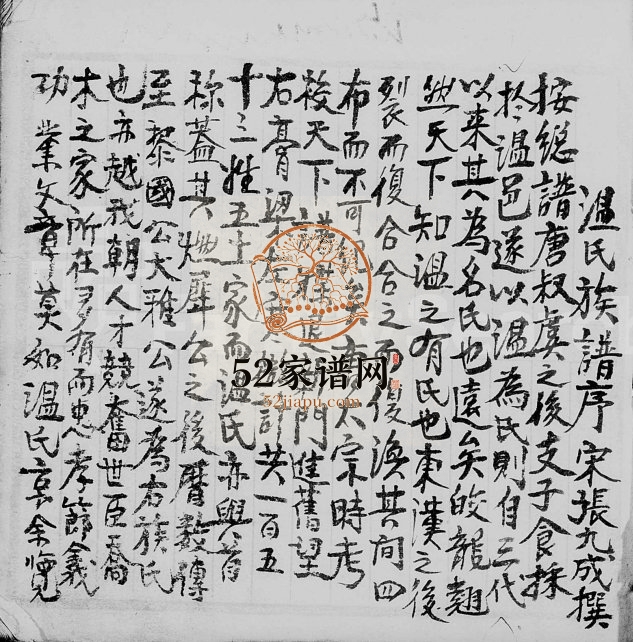 温氏族譜序 宋張九成撰
按総譜唐叔虞之後支子食採
於温邑遂以温為民則自三代
以来其為名民也遠矣蛟龍翹
然天下知温之有氏也東漢之後
裂而復合合之而復渙其间四
布而不可矣唐太宗時考
校天下譜門進舊望
右膏梁計共一百五
十三姓五十家而温氏亦與首
称蓋其燃犀公之後曆数傳
至黎國公大雅公遂為右族氏
也亦越我朝人才競奮世臣喬
木之家所在多有而忠孝節義
功業文章莫如温氏哀余覽
52家谱网
52jiapu.com